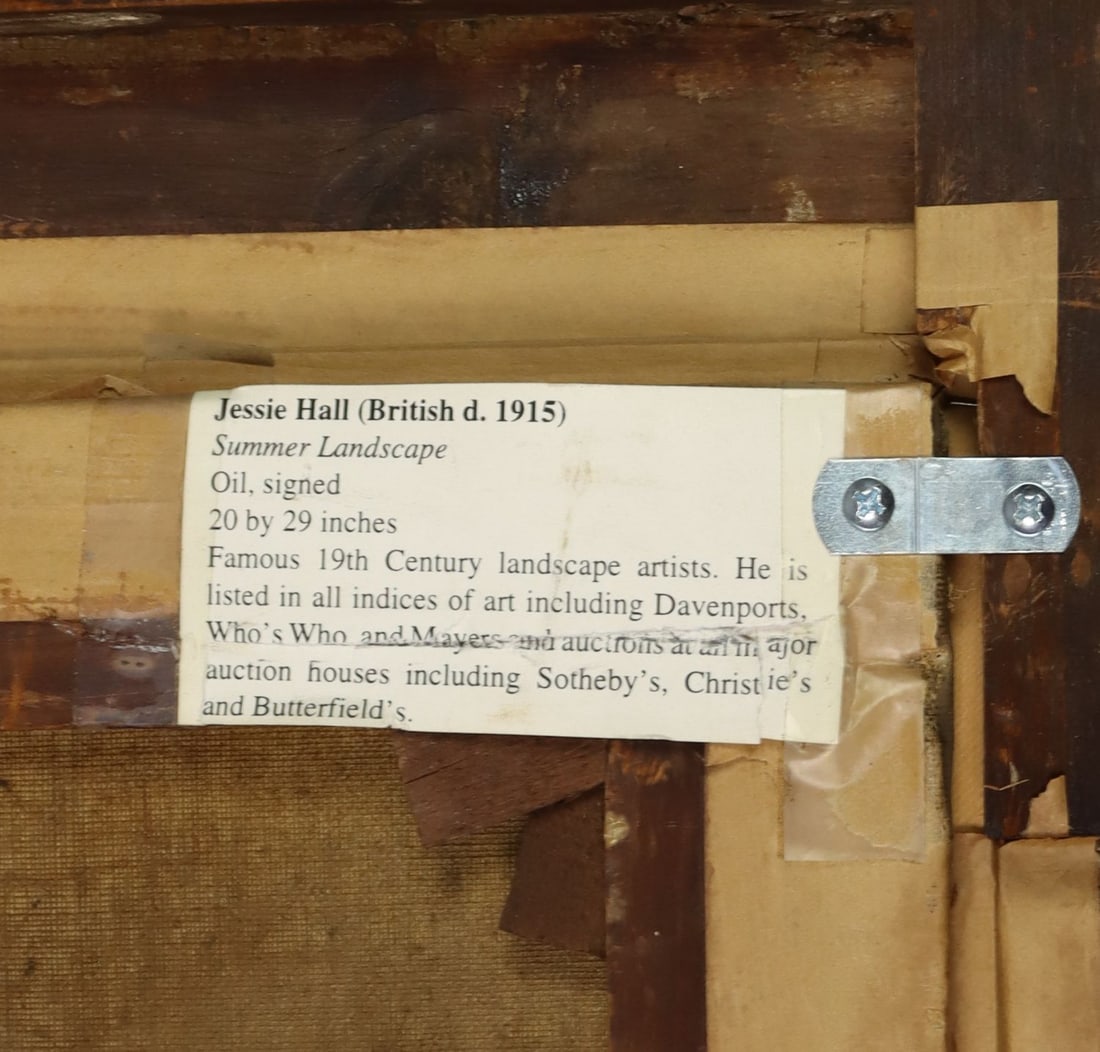 Jessie Hall (British d. 1915)
Summer Landscape
Oil, signed
20 by 29 inches
Famous 19th Century landscape artists. He is
listed in all indices of art including Davenports,
Who's Who and Mayers and auctions at all major
auction houses including Sotheby's, Christie's
and Butterfield's.